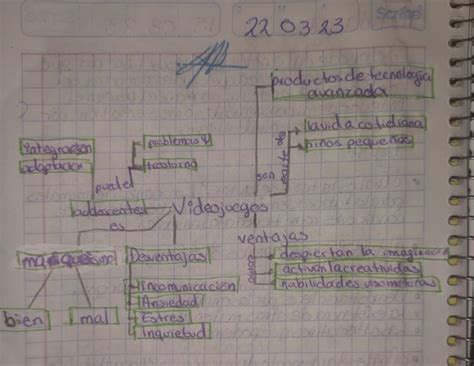 22 03 23
productos de tecnologia
avanzada
la vida cotidiana
niños pequeños
parte de
son
problemas y
trastorno
integracion
adaptacion
Videojuegos
es
ventajas
despiertan la imaginacio
activan la creatividas
habilidades visomotoras
Desventajas
Incomunicacion
Ansiedad
Estres
Inquietud
bien
mal